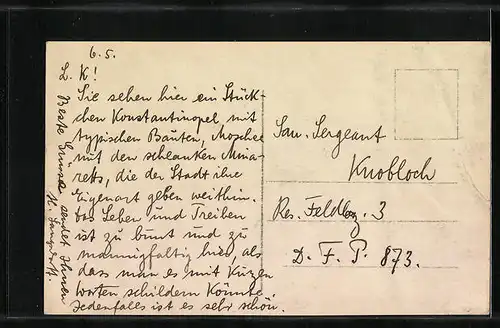 6.5.
L. K!
Sie sehen hier ein Stück-
chen Konstantinopel mit
typischen Bauten, Moschee
mit den schlanken Mina-
retts, die der Stadt ihre
Eigenart geben weithin.
Das Leben und Treiben
ist zu bunt und zu
mannigfaltig hier, als
dass man es mit kurzen
Worten schildern könnte.
Jedenfalls ist es sehr schön.
Beste Grüsse sendet Ihnen
San. Sergeant
Knobloch
Res. Feldlaz. 3
D. F. P. 873.